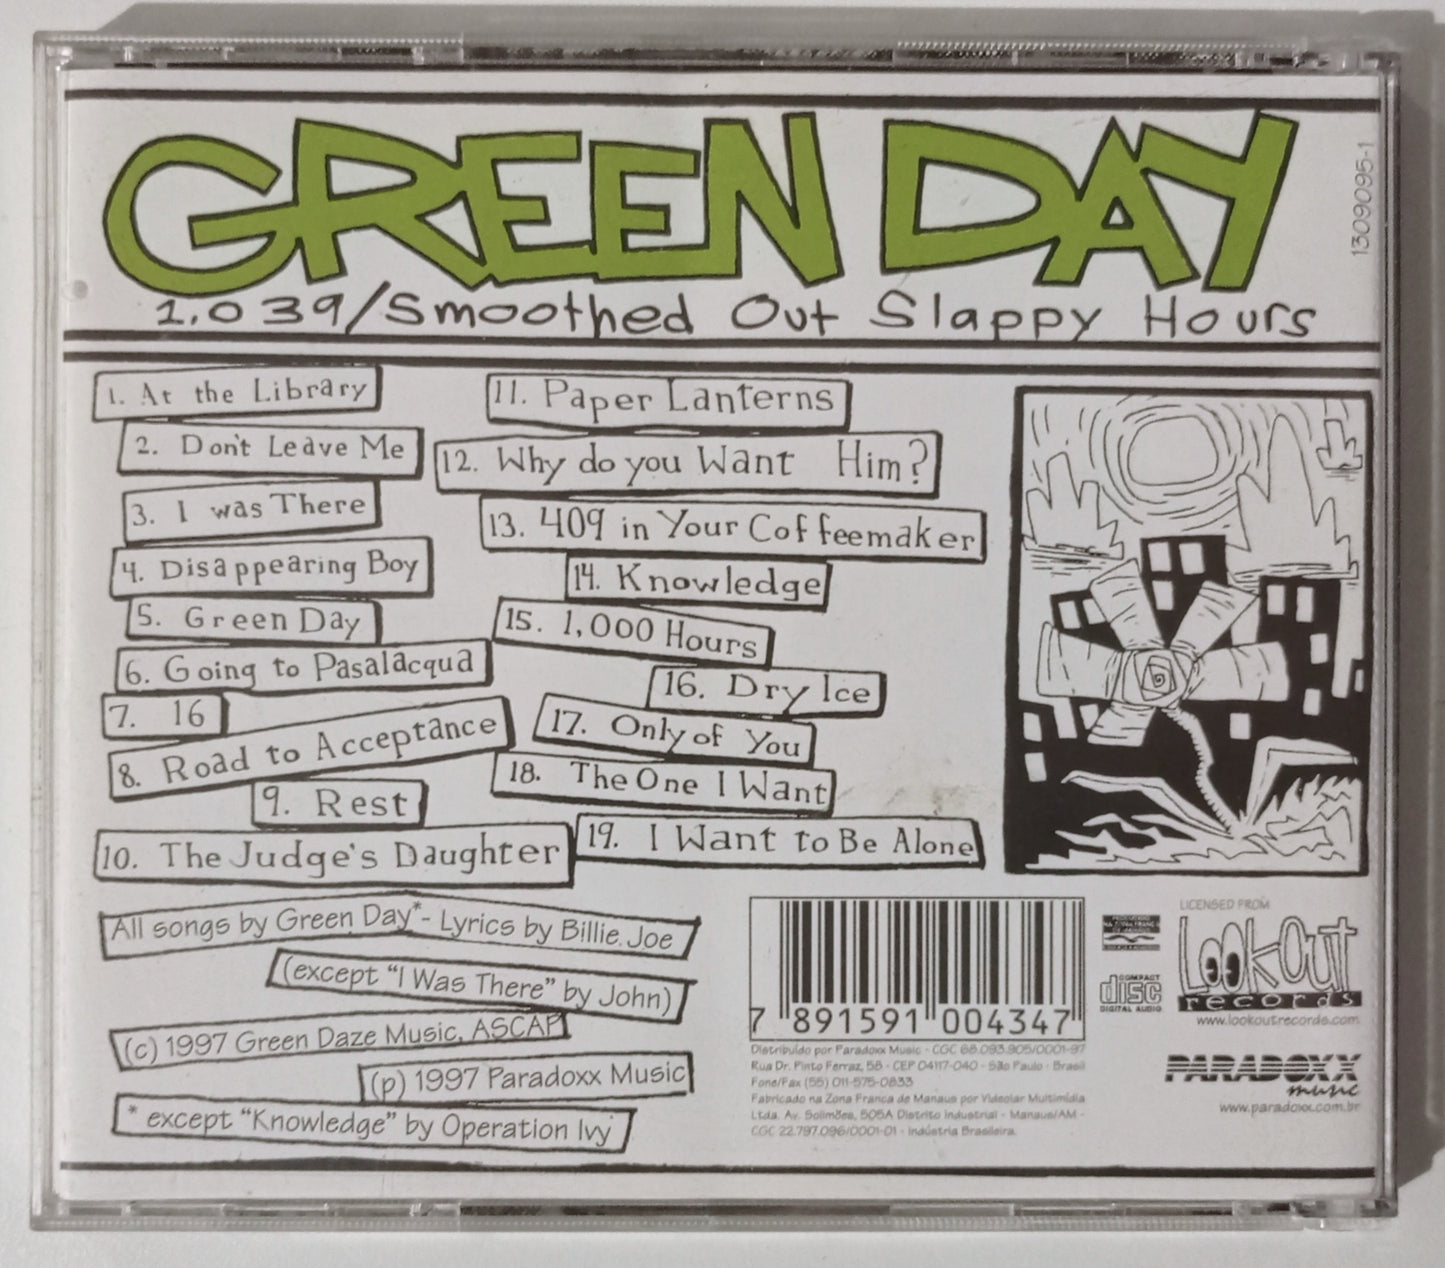 GREEN DAY
1,039/Smoothed Out Slappy Hours
1309095-1
1. At the Library
2. Don't Leave Me
3. I was There
4. Disappearing Boy
5. Green Day
6. Going to Pasalacqua
7. 16
8. Road to Acceptance
9. Rest
10. The Judge's Daughter
11. Paper Lanterns
12. Why do you Want Him?
13. 409 in Your Coffeemaker
14. Knowledge
15. 1,000 Hours
16. Dry Ice
17. Only of You
18. The One I Want
19. I Want to Be Alone
All songs by Green Day*- Lyrics by Billie Joe
(except "I Was There" by John)
(c) 1997 Green Daze Music, ASCAP
(p) 1997 Paradoxx Music
* except "Knowledge" by Operation Ivy
7 891591 004347
Distribuído por Paradoxx Music - CGC 68.093.905/0001-97
Rua Dr. Pinto Ferraz, 58 - CEP 04117-040 - São Paulo - Brasil
Fone/Fax (55) 011-575-0833
Fabricado na Zona Franca de Manaus por Videolar Multimídia
Ltda. Av. Solimões, 505A Distrito Industrial - Manaus/AM -
CGC 22.797.096/0001-01 - Indústria Brasileira.
COMPACT
disc
DIGITAL AUDIO
LICENSED FROM
LOOKOUT
records
www.lookoutrecords.com
PARADOXX
music
www.paradoxx.com.br